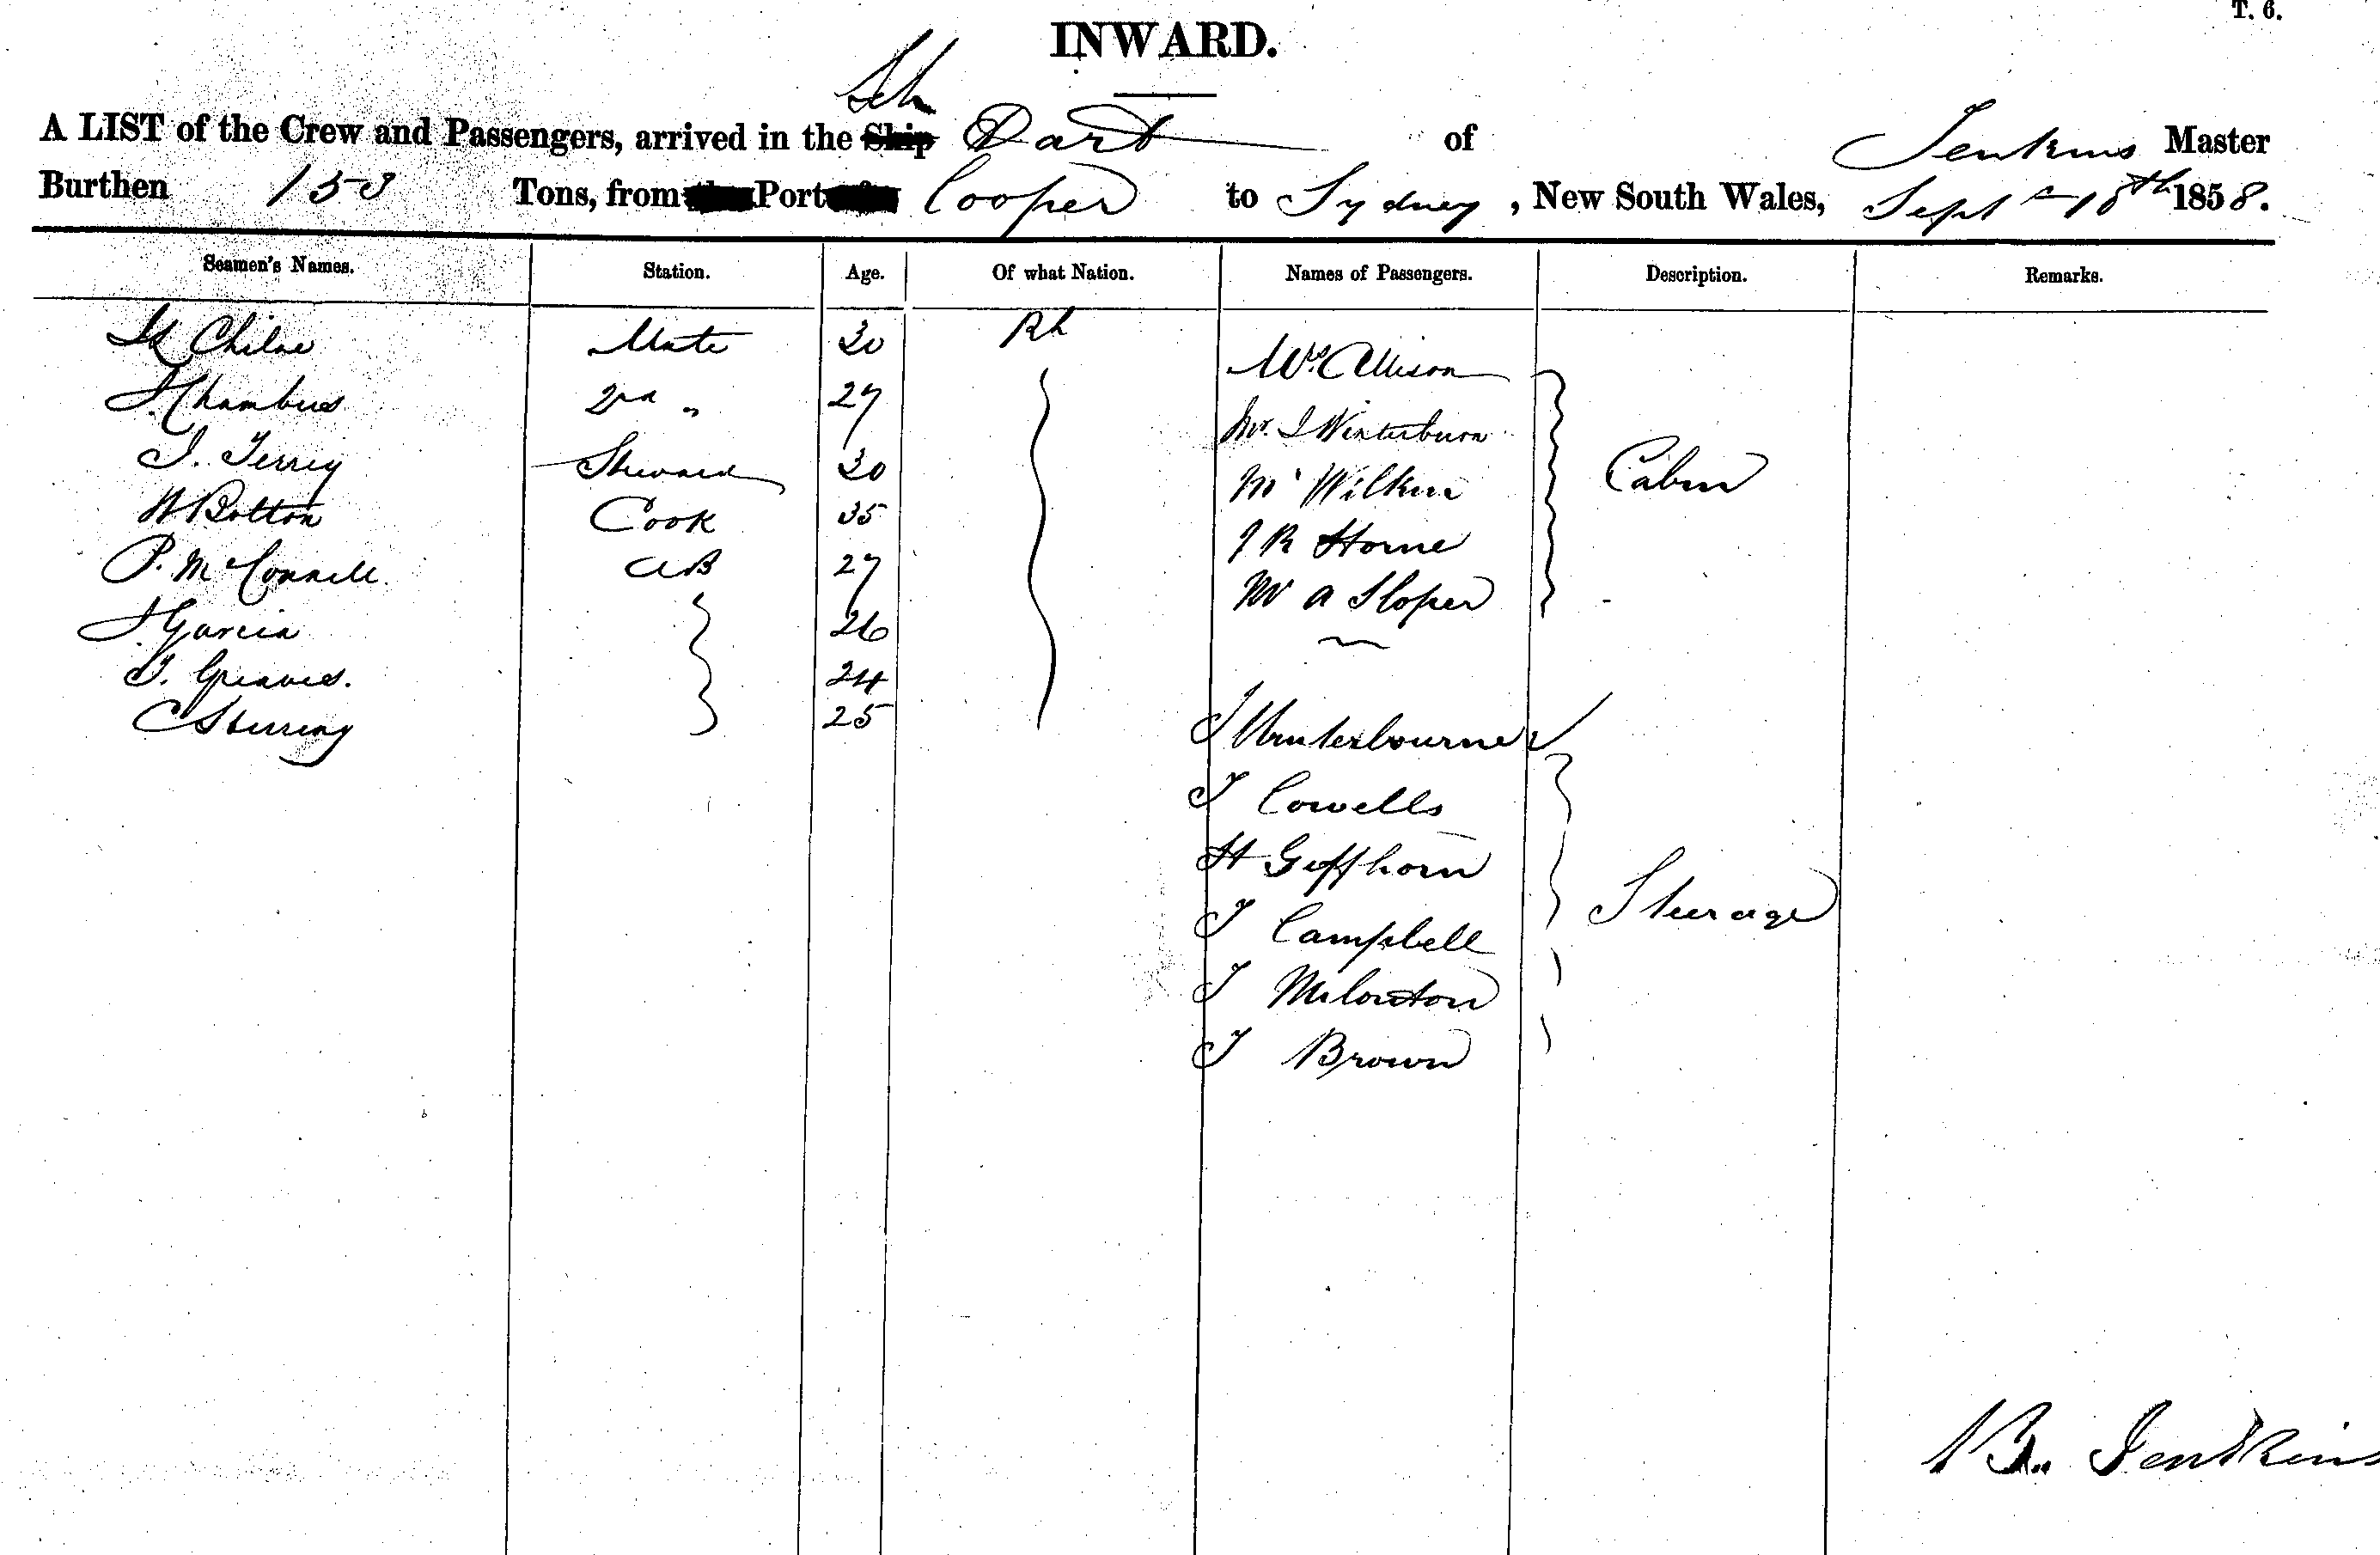 T. 6.
INWARD.
Sch
A LIST of the Crew and Passengers, arrived in the Ship Dart of Jenkins Master
Burthen 153 Tons, from Port Cooper to Sydney, New South Wales, Sept 18th 1858.
Seamen's Names. Station. Age. Of what Nation. Names of Passengers. Description. Remarks.
Mate 30
J. Chambers 2nd " 27
J. Terrey Steward 30
W Botton Cook 35
P. McConnell AB 27
J Garcia 26
T. Greaves. 24
C Sterring 25
Allison
Mr. J Winterburn
Cabin
J R Horne
Mr A Sloper
J Winterbourne
J Cowells
H Geffhorn
J Campbell
Steerage
J
J Brown
B. Jenkins